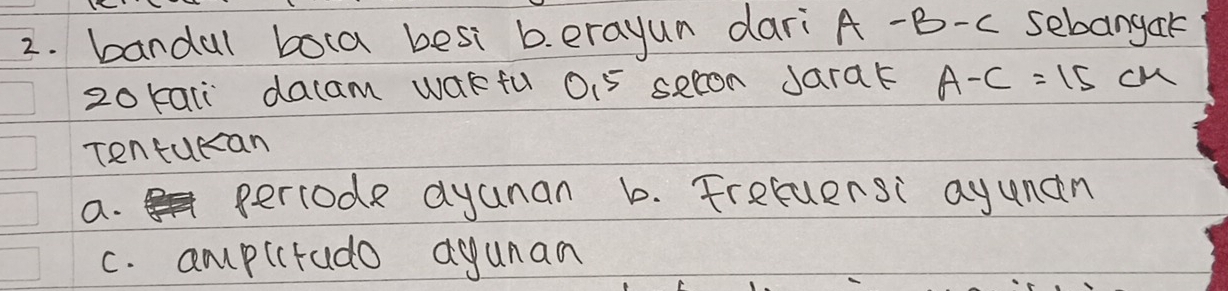 2. bandul bola besi berayun dari A - B - C sebanyak
20 kali dalam waktu 0,5 sekon Jarak A - C = 15 cm
Tentukan
a. periode ayunan b. Frekuensi ayunan
c. amplitudo ayunan